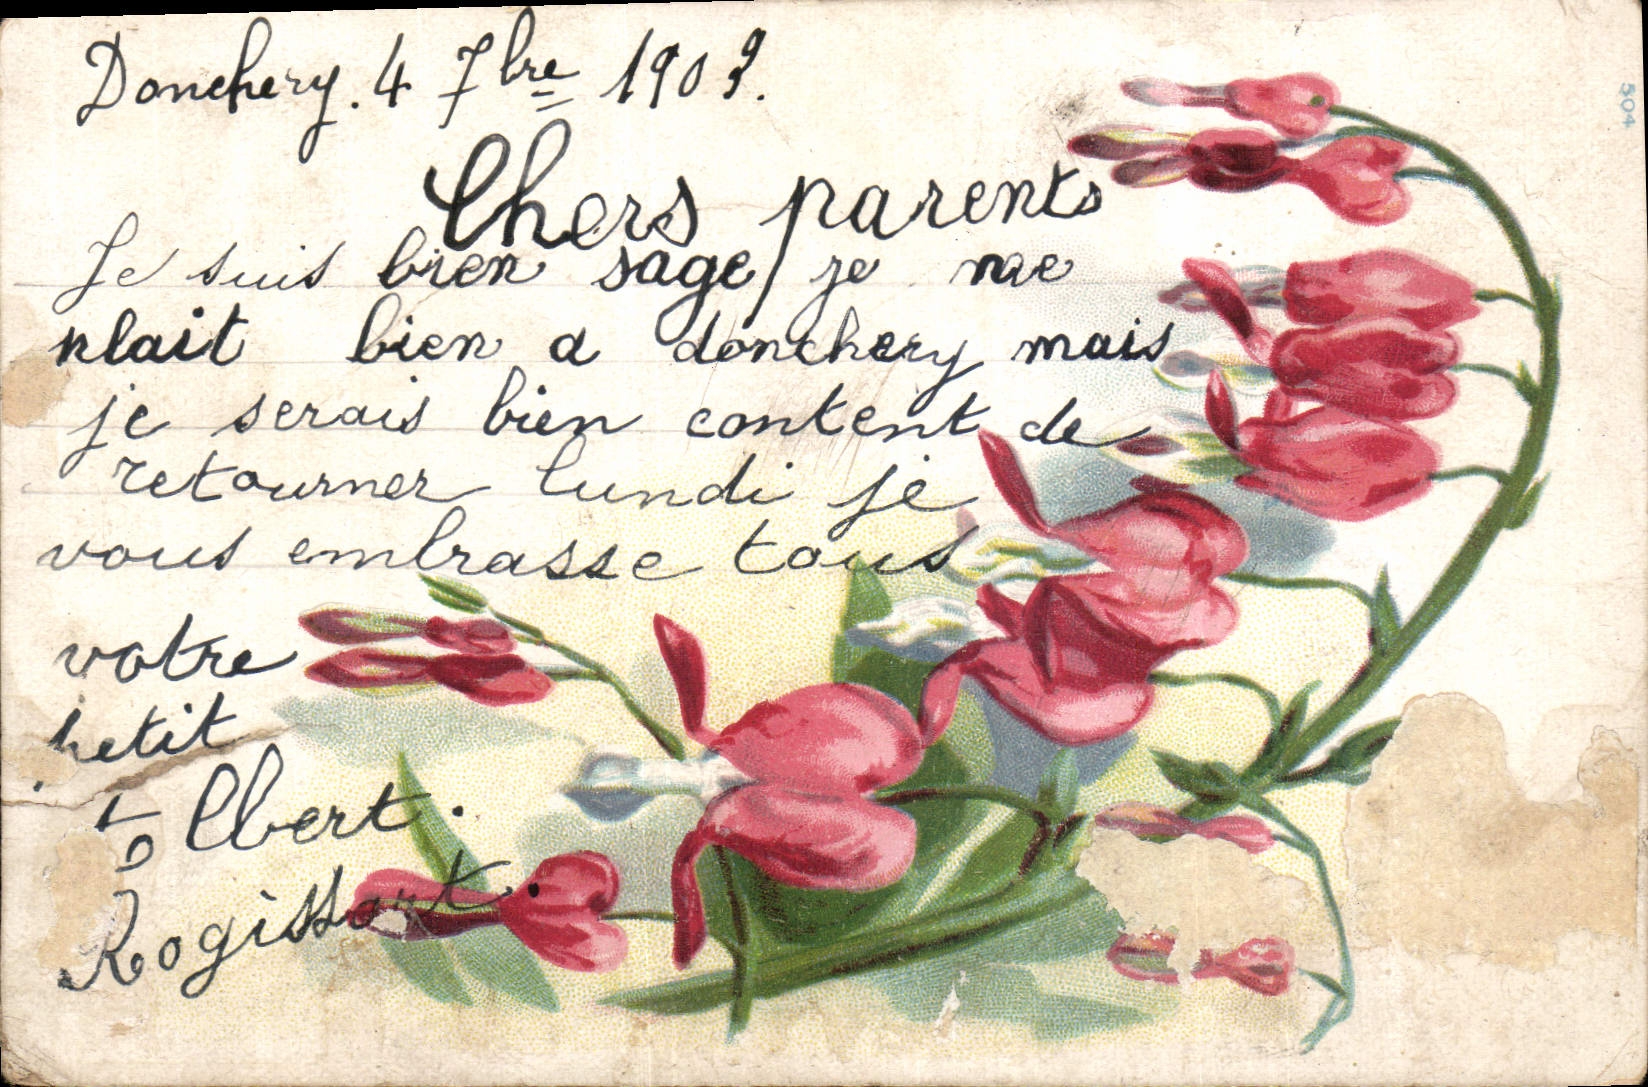 Donchery. 4 7bre 1903.
Chers parents
Je suis bien sage je me
plait bien a donchery mais
je serais bien content de
retourner lundi je
vous embrasse tous
votre
petit
Albert.
Rogissart.
504